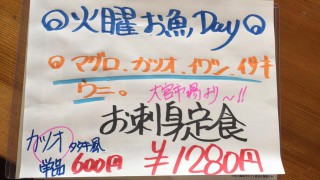 火曜お魚Day
マグロ、カツオ、イワシ、イサキ
ウニ。
大宮市場より〜!!
お刺身定食
カツオ タタキ風
単品 600円
¥1280円